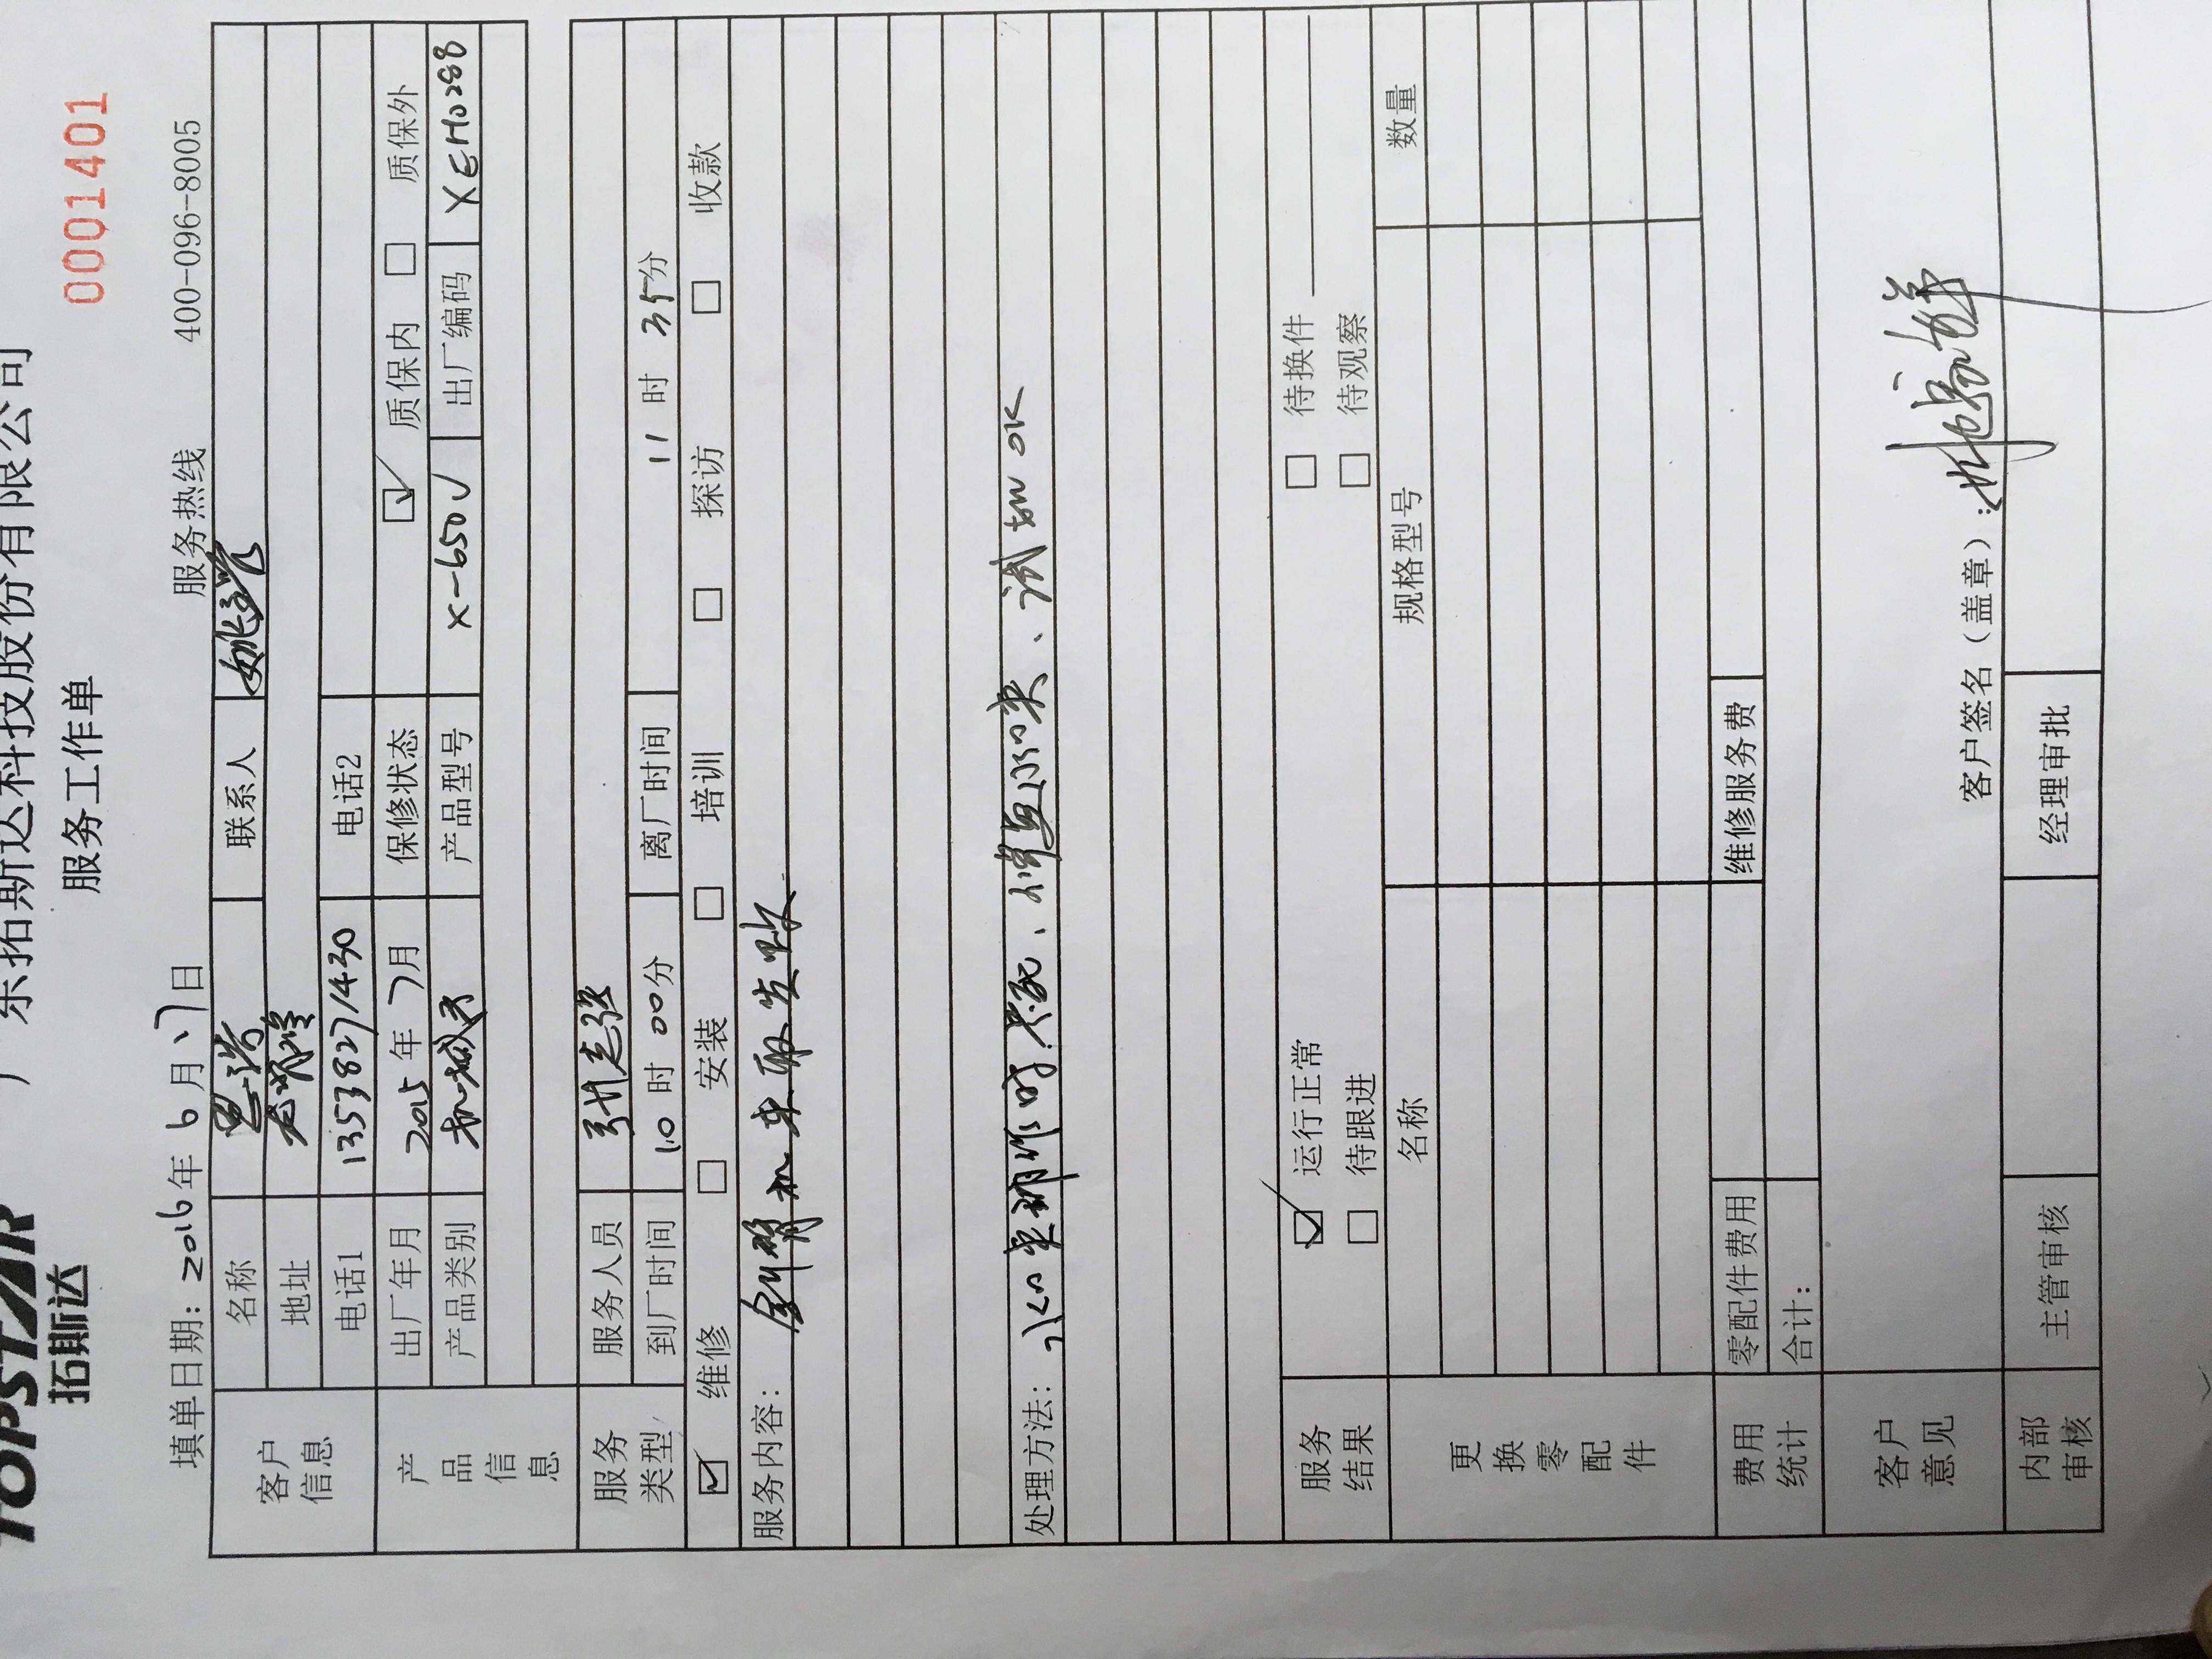 TOPSTAR 广东拓斯达科技股份有限公司
拓斯达 服务工作单 0001401
填单日期: 2016年 6月 17日 服务热线 400-096-8005
客户信息 名称 思浩 联系人
地址
电话1 13538271430 电话2
产品信息 出厂年月 2015年 7月 保修状态 ☑ 质保内 □ 质保外
产品类别 机械手 产品型号 X-650V 出厂编码 XEH0288
服务类型 服务人员 张志强
到厂时间 10时00分 离厂时间 11时35分
☑ 维修 □ 安装 □ 培训 □ 探访 □ 收款
服务内容: 斜臂机未取告败
处理方法: 试tw OK
服务结果 ☑ 运行正常 □ 待换件
□ 待跟进 □ 待观察
更换零配件 名称 规格型号 数量
费用统计 零配件费用 维修服务费
合计:
客户意见
客户签名(盖章):
内部审核 主管审核 经理审批